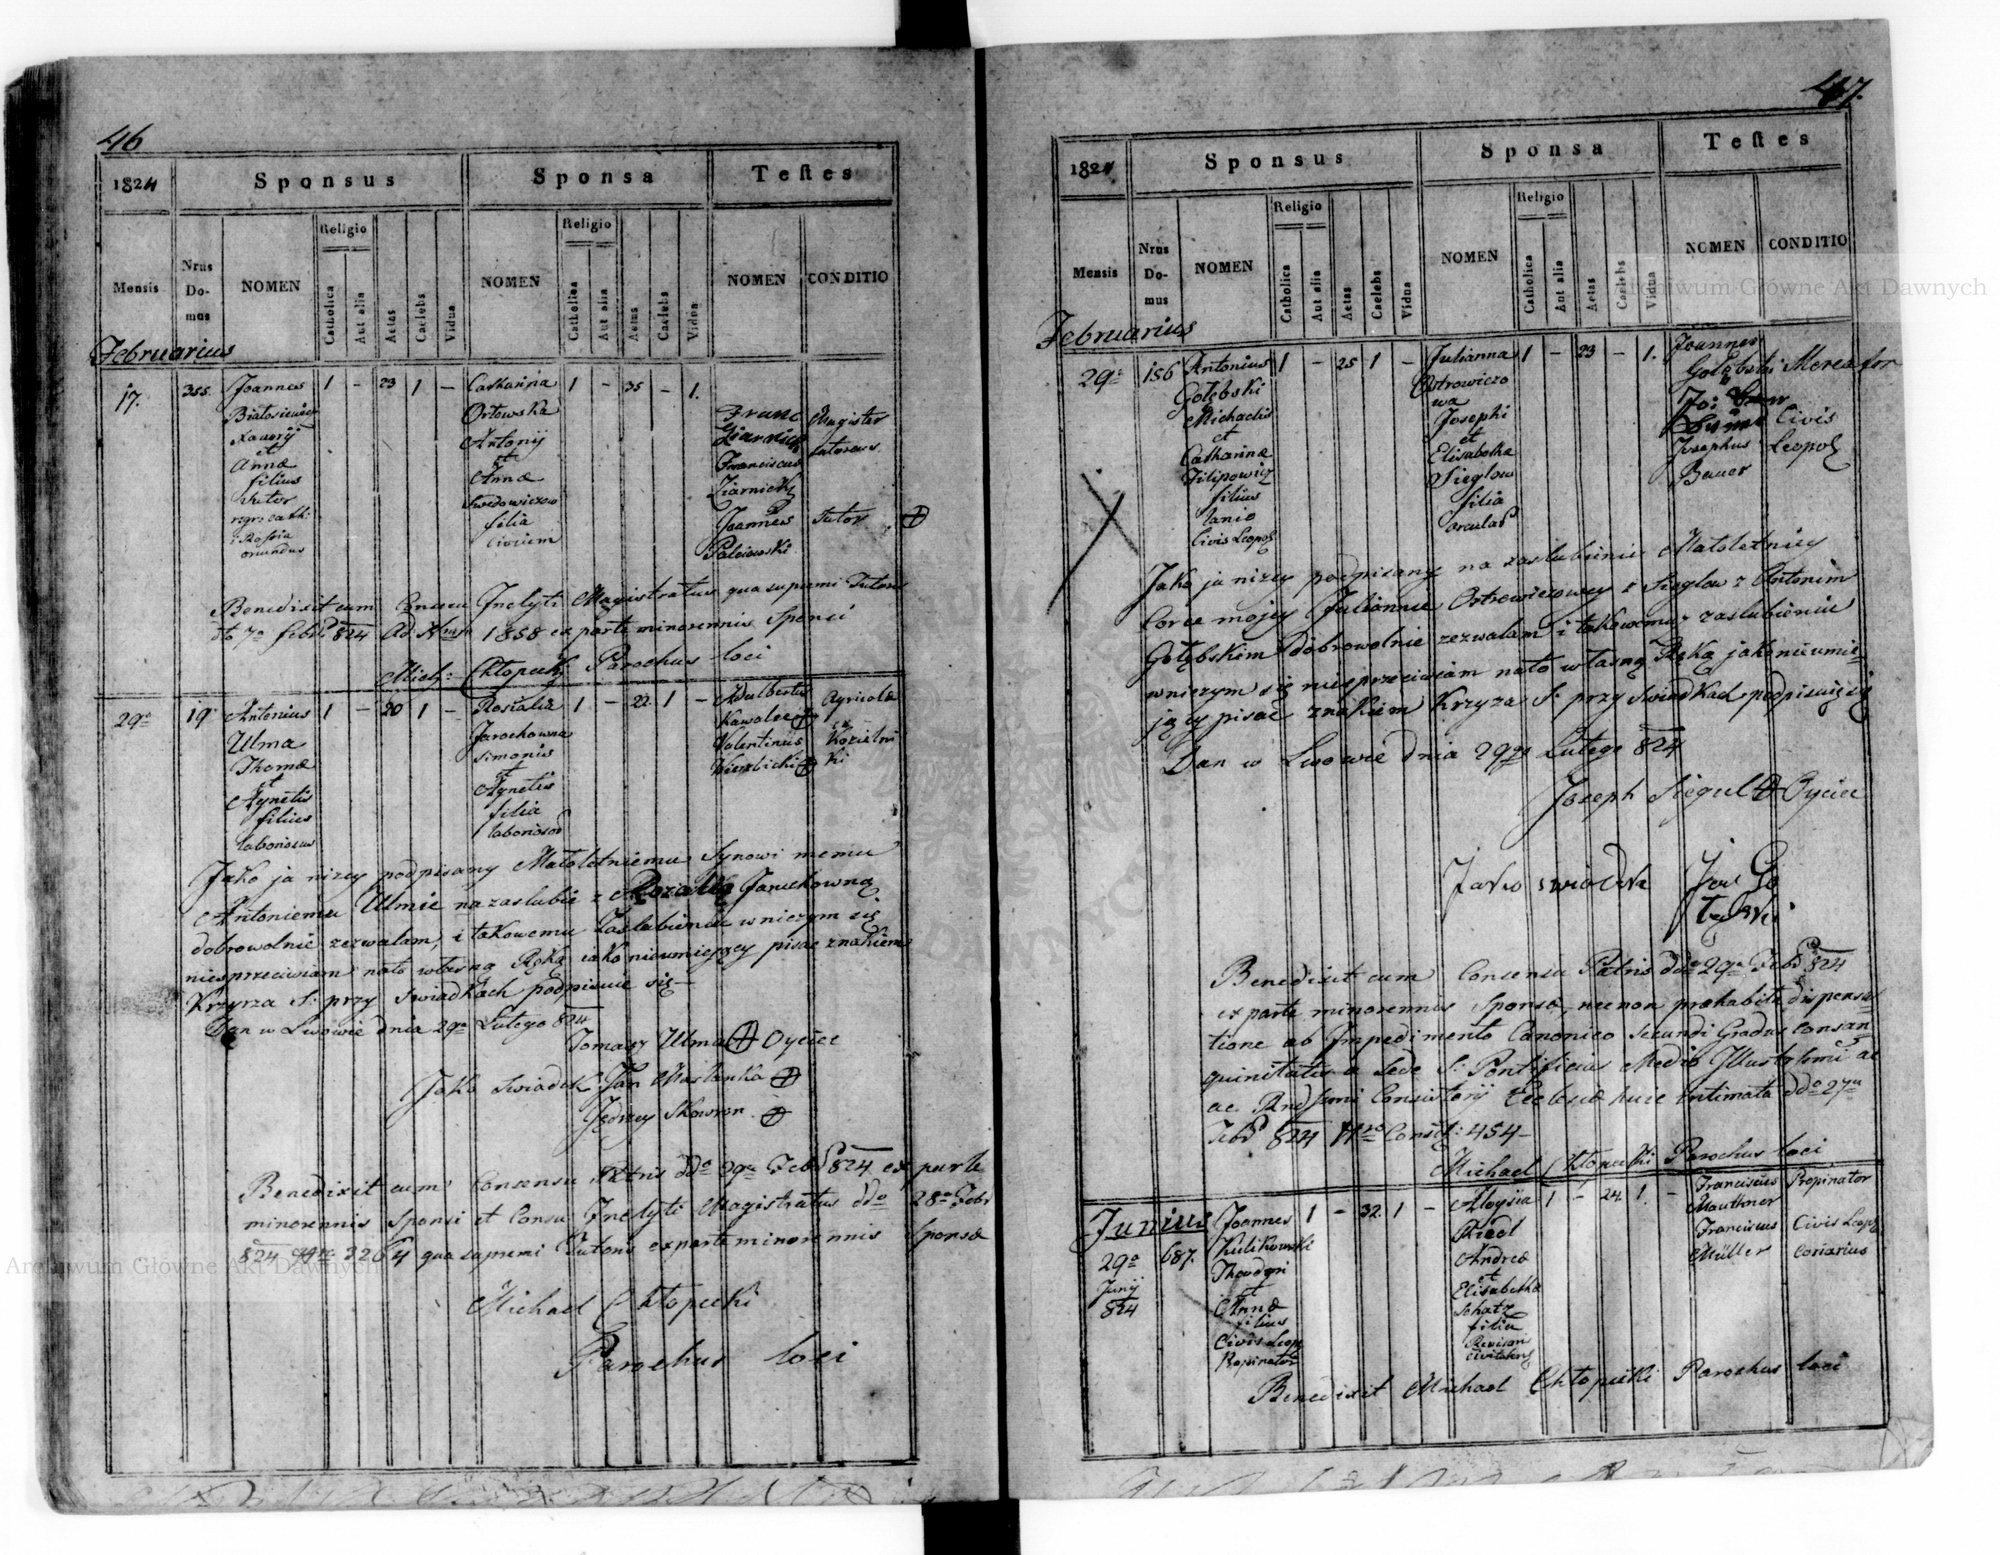 46
1824
Sponsus
Sponsa
Testes
Mensis
Nrus Domus
NOMEN
Religio
Catholica
Aut alia
Aetas
Caelebs
Vidua
NOMEN
Religio
Catholica
Aut alia
Aetas
Caelebs
Vidua
NOMEN
CONDITIO
Februarius
17. 355. Joannes 1 – 23 1 – Catharina 1 – 35 – 1.
Białosiewicz
Xaverij
et
Anna
filius
Sutor
Orłowska
Antonij
et
Annæ
filia
civium
Franciscus
Ziarnicki
Magister
Joannes
Sutor
Benedixit cum Consensu Inclyti Magistratus qua supremi Tutoris
dto 7a Febr 824 Ad Num 1858 ex parte minorennis Sponsi
Mich: Chłopecki Parochus loci
29a 19 Antonius 1 – 20 1 – Rosalia 1 – 22 1 – Adalbertus Agricola
Ulma
Thomæ
et
Agnetis
filius
laboriosus
Jarochowna
Simonis
et
Agnetis
filia
laboriosor
Kawalec
Valentinus
Wierzbicki
ex
Kozielni
ki
Jako ja nizey podpisany Małoletniemu Synowi memu
Antoniemu Ulmie na zaslubie z Rozalią Jaruchowną
dobrowolnie zezwalam, i takowemu Zaslubieniu w niczym się
niesprzeciwiam nato własną Ręką jako nieumiejący pisac znakiem
Krzyrza S. przy swiadkach podpisuie się –
Dan w Lwowie dnia 29go Lutego 824
Tomasz Ulma Oyciec
Jako swiadek Jan Maslanka
Jędrzey Skowron
Benedixit cum Consensu Patris ddo 29a Febr 824 ex parte
minorennis Sponsi et Consu Inclyti Magistratus ddo 28a Febr
824 2264 qua supremi Tutoris ex parte minorennis Sponsæ
Michael Chłopecki
Parochus loci
47.
1824
Sponsus
Sponsa
Testes
Mensis
Nrus Domus
NOMEN
Religio
Catholica
Aut alia
Aetas
Caelebs
Vidua
NOMEN
Religio
Catholica
Aut alia
Aetas
Caelebs
Vidua
NOMEN
CONDITIO
Februarius
29a 156 Antonius 1 – 25 1 – Julianna 1 – 23 – 1. Joannes
Gołębski
Michaelis
et
Catharinæ
Filipowicz
filius
Lanio
Civis Leopol
Ostrowiczo
wa
Josephi
et
Elisabethæ
Sieglow
filia
Gołębski Mercator
Josephus
Bauer
Civis
Leopol
Jako ja nizey podpisany na zaslubienie Małoletniey
Corce mojey Juliannie Ostrowiczowey z Sieglow z Antonim
Gołębskim dobrowolnie zezwalam i takowemu zaslubieniu
w niczym się niesprzeciwiam nato własną Ręką jako nieumie
jący pisac znakiem Krzyza S. przy swiadkach podpisuię się
Dan w Lwowie dnia 29go Lutego 824
Joseph Siegul Oyciec
Jako swiadek
Benedixit cum Consensu Patris ddo 29a Febr 824
ex parte minorennis Sponsæ, necnon præhabita dispensa
tione ab Impedimento Canonico Secundi Gradus Consan
guinitatis a Sede S. Pontificia Medio Illustrissimi ac
Consistorij Ecclesiæ huic intimata ddo 27a
Febr 824 Nro Consist: 454 –
Michael Chłopecki Parochus loci
Junius
29a
Junij
824
687. Joannes 1 – 32 1 – Aloysia 1 – 24 1. – Franciscus Propinator
Kulikowski
et
Annæ
filius
Civis Leop
Propinator
Riedl
Andreæ
et
Elisabethæ
Schatz
filia
Mauthner
Franciscus Civis Leopol
Müller Coriarius
Benedixit Michael Chłopecki Parochus loci
Archiwum Główne Akt Dawnych
Archiwum Główne Akt Dawnych